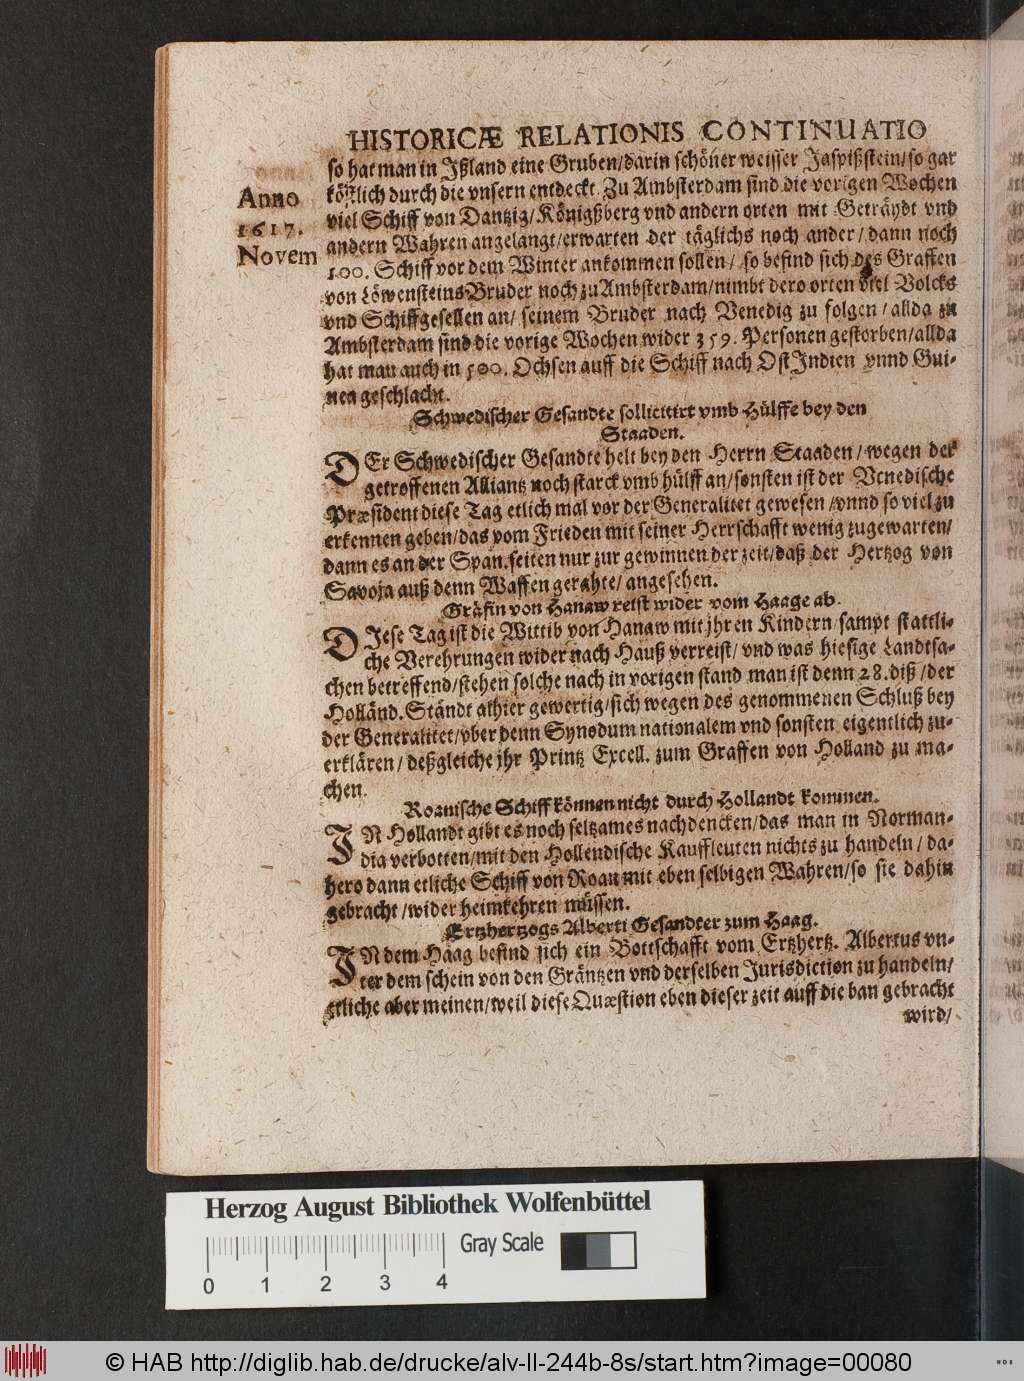 HISTORICÆ RELATIONIS CONTINUATIO
Anno
1617.
Novem
so hat man in Jßland eine Gruben/darin schöner weisser Jaspißstein/so gar
köstlich durch die vnsern entdeckt. Zu Ambsterdam sind die vorigen Wochen
viel Schiff von Dantzig/Königßberg vnd andern orten mit Geträydt vnd
andern Wahren angelangt/erwarten der täglichs noch ander/dann noch
100. Schiff vor dem Winter ankommen sollen/ so befind sich des Graffen
von Löwensteins Bruder noch zu Ambsterdam/nimbt dero orten viel Volcks
vnd Schiffgesellen an/ seinem Bruder nach Venedig zu folgen/allda zu
Ambsterdam sind die vorige Wochen wider 359. Personen gestorben/allda
hat man auch in 500. Ochsen auff die Schiff nach Ost Jndien vnnd Gui-
nea geschlacht.
Schwedischer Gesandte sollicitirt vmb Hülffe bey den
Staaden.
DEr Schwedischer Gesandte helt bey den Herrn Staaden/wegen der
getroffenen Alliantz noch starck vmb hülff an/sonsten ist der Venedische
Præsident diese Tag etlich mal vor der Generalitet gewesen/vnnd so viel zu
erkennen geben/das vom Frieden mit seiner Herrschafft wenig zugewarten/
dann es an der Span.seiten nur zur gewinnen der zeit/daß der Hertzog von
Savoja auß denn Waffen gerahte/angesehen.
Gräfin von Hanaw reist wider vom Haage ab.
DJese Tag ist die Wittib von Hanaw mit jhren Kindern/sampt stattli-
che Verehrungen wider nach Hauß verreist/vnd was hiesige Landtsa-
chen betreffend/stehen solche nach in vorigen stand man ist denn 28. diß/der
Holländ. Ständt alhier gewertig/sich wegen des genommenen Schluß bey
der Generalitet/vber denn Synodum nationalem vnd sonsten eigentlich zu-
erklären/deßgleiche jhr Printz Excell. zum Graffen von Holland zu ma-
chen.
Roanische Schiff können nicht durch Hollandt kommen.
JN Hollandt gibt es noch seltzames nachdencken/das man in Norman-
dia verbotten/mit den Hollendische Kauffleuten nichts zu handeln/da-
hero dann etliche Schiff von Roan mit eben selbigen Wahren/so sie dahin
gebracht/wider heimkehren müssen.
Ertzhertzogs Alberti Gesandter zum Haag.
JN dem Haag befind sich ein Bottschafft vom Ertzhertz. Albertus vn-
ter dem schein von den Gräntzen vnd derselben Jurisdiction zu handeln/
etliche aber meinen/weil diese Quæstion eben dieser zeit auff die ban gebracht
wird/
Herzog August Bibliothek Wolfenbüttel
Gray Scale
0 1 2 3 4
© HAB http://diglib.hab.de/drucke/alv-ll-244b-8s/start.htm?image=00080